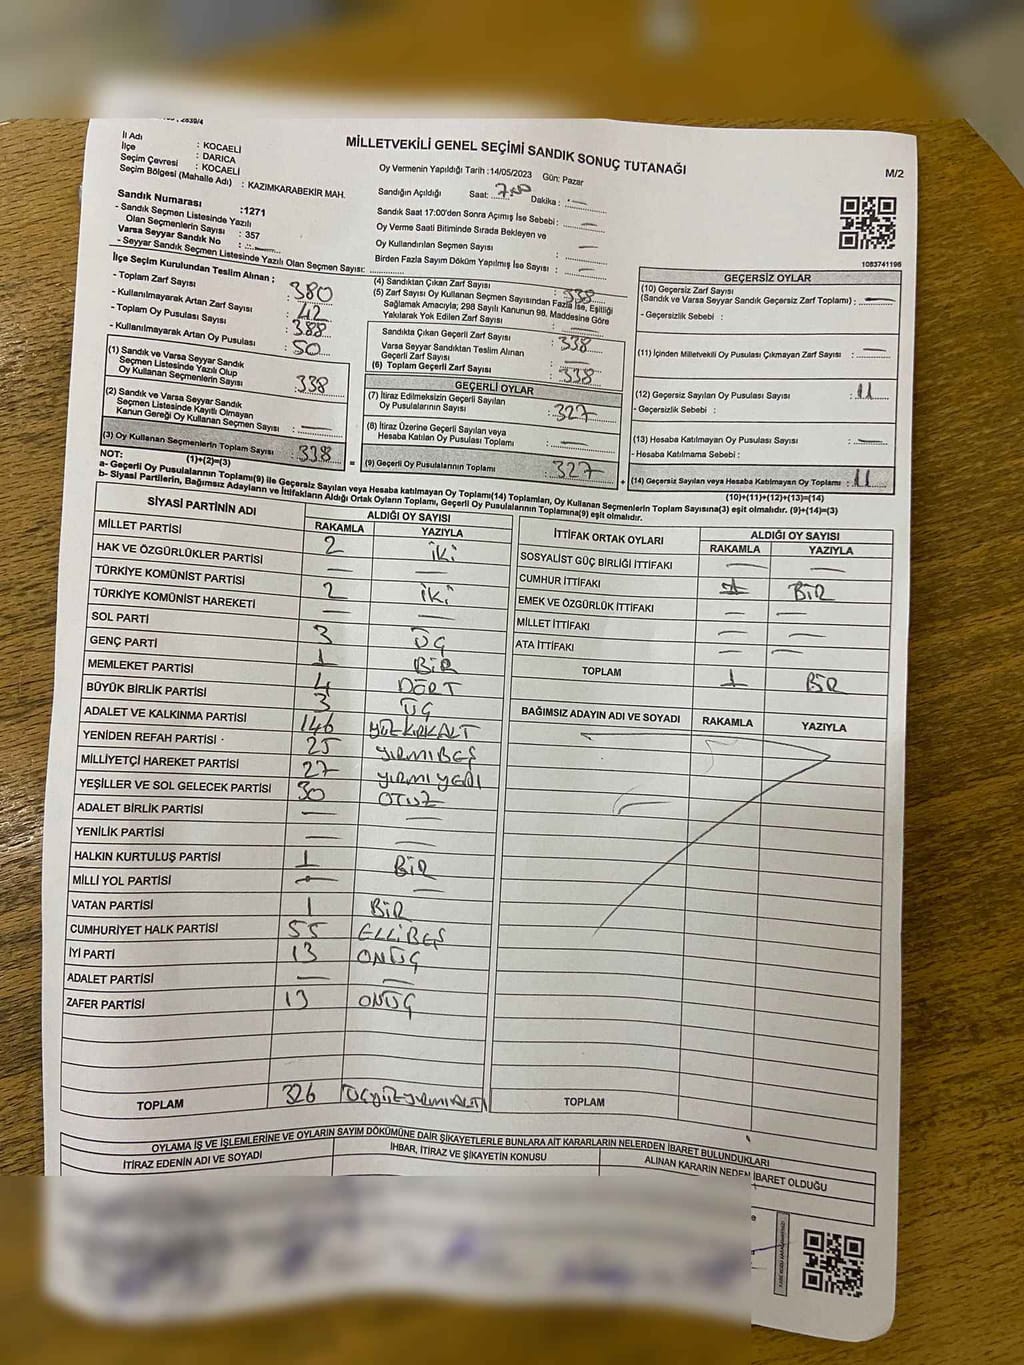 2839/4
MİLLETVEKİLİ GENEL SEÇİMİ SANDIK SONUÇ TUTANAĞI
M/2
İl Adı : KOCAELİ
İlçe : DARICA
Seçim Çevresi : KOCAELİ
Seçim Bölgesi (Mahalle Adı) : KAZIMKARABEKİR MAH.
Oy Vermenin Yapıldığı Tarih :14/05/2023 Gün: Pazar
Sandığın Açıldığı Saat: 7:00 Dakika : —
Sandık Saat 17:00'den Sonra Açımış İse Sebebi : —
Oy Verme Saati Bitiminde Sırada Bekleyen ve
Oy Kullandırılan Seçmen Sayısı : —
Birden Fazla Sayım Döküm Yapılmış İse Sayısı : —
Sandık Numarası :1271
- Sandık Seçmen Listesinde Yazılı
Olan Seçmenlerin Sayısı : 357
Varsa Seyyar Sandık No : —
- Seyyar Sandık Seçmen Listesinde Yazılı Olan Seçmen Sayısı:
1083741196
İlçe Seçim Kurulundan Teslim Alınan ;
- Toplam Zarf Sayısı : 380
- Kullanılmayarak Artan Zarf Sayısı : 42
- Toplam Oy Pusulası Sayısı : 388
- Kullanılmayarak Artan Oy Pusulası : 50
(1) Sandık ve Varsa Seyyar Sandık
Seçmen Listesinde Yazılı Olup
Oy Kullanan Seçmenlerin Sayısı : 338
(2) Sandık ve Varsa Seyyar Sandık
Seçmen Listesinde Kayıtlı Olmayan
Kanun Gereği Oy Kullanan Seçmen Sayısı : —
(3) Oy Kullanan Seçmenlerin Toplam Sayısı : 338
(1)+(2)=(3)
(4) Sandıktan Çıkan Zarf Sayısı : 338
(5) Zarf Sayısı Oy Kullanan Seçmen Sayısından Fazla İse, Eşitliği
Sağlamak Amacıyla; 298 Sayılı Kanunun 98. Maddesine Göre
Yakılarak Yok Edilen Zarf Sayısı : —
Sandıkta Çıkan Geçerli Zarf Sayısı : 338
Varsa Seyyar Sandıktan Teslim Alınan
Geçerli Zarf Sayısı : —
(6) Toplam Geçerli Zarf Sayısı : 338
GEÇERLİ OYLAR
(7) İtiraz Edilmeksizin Geçerli Sayılan
Oy Pusulalarının Sayısı : 327
(8) İtiraz Üzerine Geçerli Sayılan veya
Hesaba Katılan Oy Pusulası Toplamı : —
= (9) Geçerli Oy Pusulalarının Toplamı : 327
GEÇERSİZ OYLAR
(10) Geçersiz Zarf Sayısı
(Sandık ve Varsa Seyyar Sandık Geçersiz Zarf Toplamı) : —
- Geçersizlik Sebebi :
(11) İçinden Milletvekili Oy Pusulası Çıkmayan Zarf Sayısı : —
(12) Geçersiz Sayılan Oy Pusulası Sayısı : 11
- Geçersizlik Sebebi :
(13) Hesaba Katılmayan Oy Pusulası Sayısı : —
- Hesaba Katılmama Sebebi :
+ (14) Geçersiz Sayılan veya Hesaba Katılmayan Oy Toplamı : 11
(10)+(11)+(12)+(13)=(14)
NOT:
a- Geçerli Oy Pusulalarının Toplamı(9) ile Geçersiz Sayılan veya Hesaba katılmayan Oy Toplamı(14) Toplamları, Oy Kullanan Seçmenlerin Toplam Sayısına(3) eşit olmalıdır. (9)+(14)=(3)
b- Siyasi Partilerin, Bağımsız Adayların ve İttifakların Aldığı Ortak Oyların Toplamı, Geçerli Oy Pusulalarının Toplamına(9) eşit olmalıdır.
SİYASİ PARTİNİN ADI ALDIĞI OY SAYISI
RAKAMLA YAZIYLA
MİLLET PARTİSİ 2 İKİ
HAK VE ÖZGÜRLÜKLER PARTİSİ — —
TÜRKİYE KOMÜNİST PARTİSİ 2 İKİ
TÜRKİYE KOMÜNİST HAREKETİ — —
SOL PARTİ 3 ÜÇ
GENÇ PARTİ 1 BİR
MEMLEKET PARTİSİ 4 DÖRT
BÜYÜK BİRLİK PARTİSİ 3 ÜÇ
ADALET VE KALKINMA PARTİSİ 146 YÜZKIRKALT
YENİDEN REFAH PARTİSİ 25 YIRMIBEŞ
MİLLİYETÇİ HAREKET PARTİSİ 27 YIRMI YEDİ
YEŞİLLER VE SOL GELECEK PARTİSİ 30 OTUZ
ADALET BİRLİK PARTİSİ — —
YENİLİK PARTİSİ — —
HALKIN KURTULUŞ PARTİSİ 1 BİR
MİLLİ YOL PARTİSİ — —
VATAN PARTİSİ 1 BİR
CUMHURİYET HALK PARTİSİ 55 ELLİBEŞ
İYİ PARTİ 13 ONÜÇ
ADALET PARTİSİ — —
ZAFER PARTİSİ 13 ONÜÇ
TOPLAM 326 ÜÇYÜZYIRMIALTI
İTTİFAK ORTAK OYLARI ALDIĞI OY SAYISI
RAKAMLA YAZIYLA
SOSYALİST GÜÇ BİRLİĞİ İTTİFAKI — —
CUMHUR İTTİFAKI 1 BİR
EMEK VE ÖZGÜRLÜK İTTİFAKI — —
MİLLET İTTİFAKI — —
ATA İTTİFAKI — —
TOPLAM 1 BİR
BAĞIMSIZ ADAYIN ADI VE SOYADI RAKAMLA YAZIYLA
TOPLAM
OYLAMA İŞ VE İŞLEMLERİNE VE OYLARIN SAYIM DÖKÜMÜNE DAİR ŞİKAYETLERLE BUNLARA AİT KARARLARIN NELERDEN İBARET BULUNDUKLARI
İTİRAZ EDENİN ADI VE SOYADI İHBAR, İTİRAZ VE ŞİKAYETİN KONUSU ALINAN KARARIN NEDEN İBARET OLDUĞU